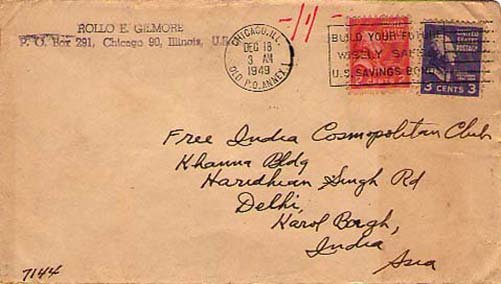 ROLLO E. GILMORE
P. O. Box 291, Chicago 90, Illinois, U.S.
-11-
CHICAGO, ILL.
DEC 18
3 AM
1949
OLD P.O. ANNEX 1
BUILD YOUR FUTURE
WISELY SAFELY
U.S. SAVINGS BONDS
UNITED STATES POSTAGE
3 CENTS 3
Free India Cosmopolitan Club
Khanna Bldg
Haridhian Singh Rd
Delhi,
Karol Bagh,
India
Asia
7144